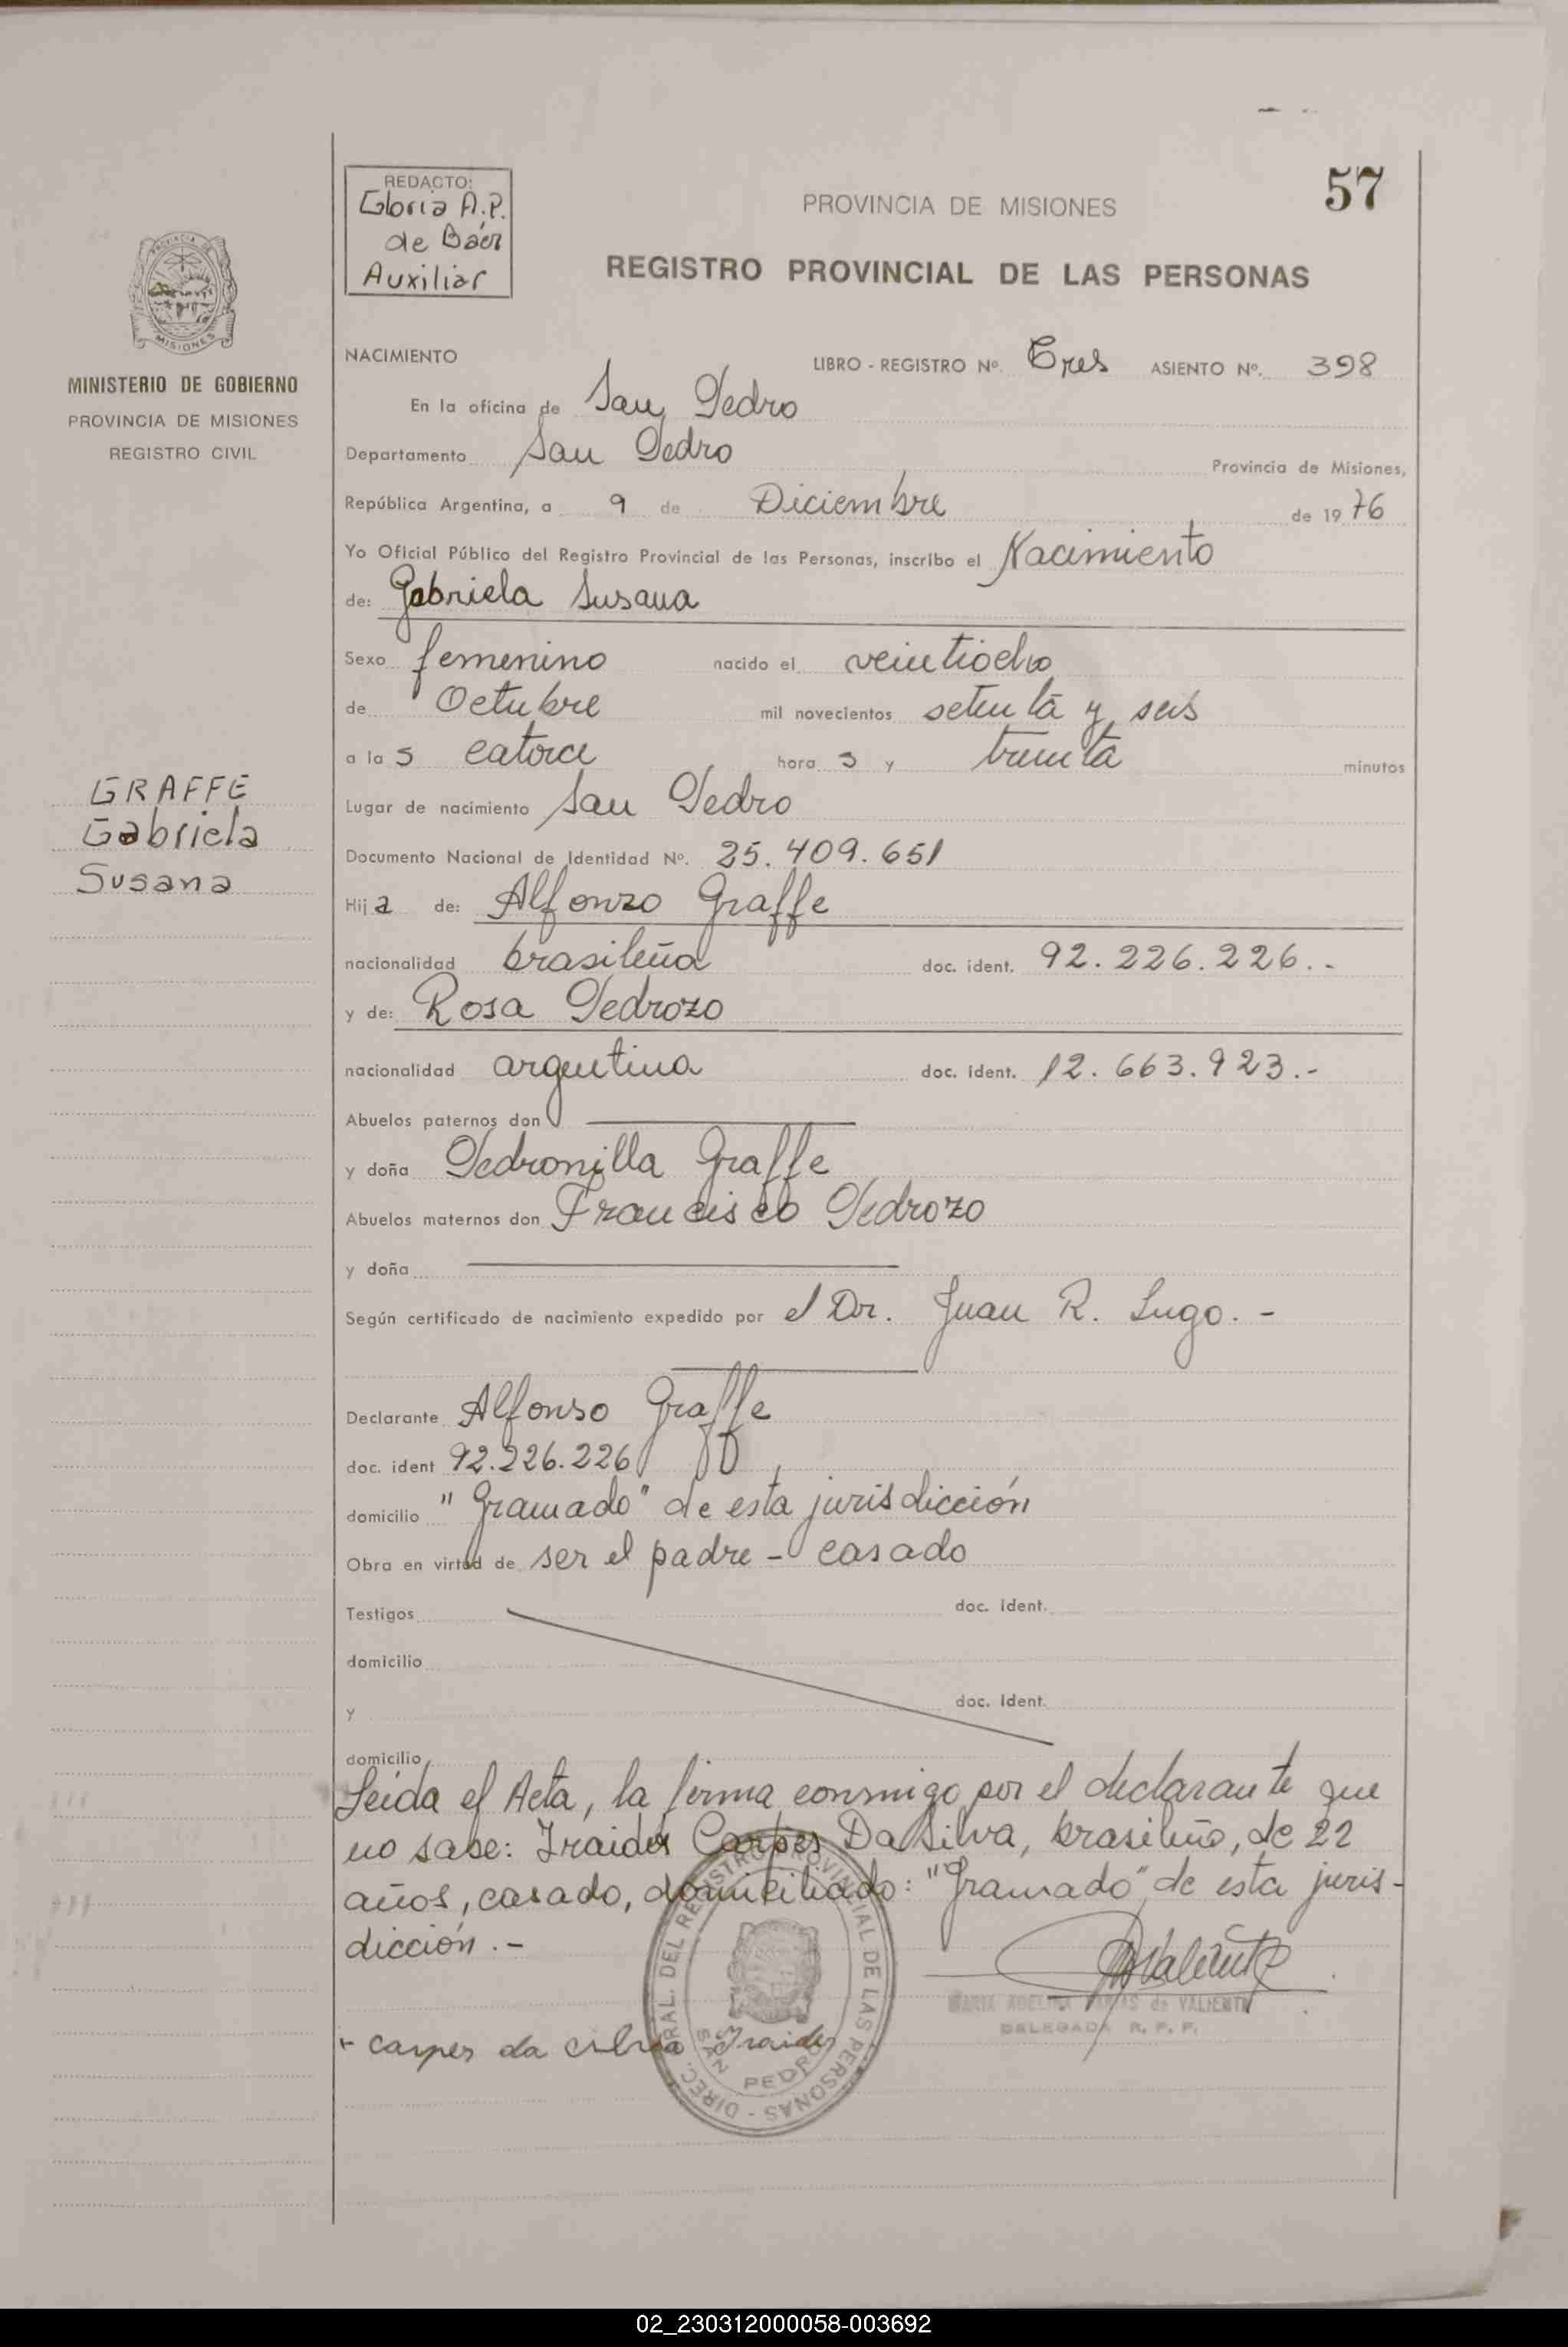 57
REDACTO:
Gloria A.P.
de Báer
Auxiliar
PROVINCIA DE MISIONES
REGISTRO PROVINCIAL DE LAS PERSONAS
PROVINCIA DE MISIONES
MINISTERIO DE GOBIERNO
PROVINCIA DE MISIONES
REGISTRO CIVIL
GRAFFE
Gabriela
Susana
NACIMIENTO LIBRO - REGISTRO Nº. Tres ASIENTO Nº. 398
En la oficina de San Pedro
Departamento San Pedro Provincia de Misiones,
República Argentina, a 9 de Diciembre de 1976
Yo Oficial Público del Registro Provincial de las Personas, inscribo el Nacimiento
de: Gabriela Susana
Sexo femenino nacido el veintiocho
de Octubre mil novecientos setenta y seis
a la s catorce hora s y treinta minutos
Lugar de nacimiento San Pedro
Documento Nacional de Identidad Nº. 25.409.651
Hij a de: Alfonzo Graffe
nacionalidad brasileña doc. ident. 92.226.226.-
y de: Rosa Pedrozo
nacionalidad argentina doc. ident. 12.663.923.-
Abuelos paternos don
y doña Pedronilla Graffe
Abuelos maternos don Francisco Pedrozo
y doña
Según certificado de nacimiento expedido por el Dr. Juan R. Lugo. -
Declarante Alfonso Graffe
doc. ident 92.226.226
domicilio "Gramado" de esta jurisdicción
Obra en virtud de ser el padre - casado
Testigos doc. ident.
domicilio
y doc. ident.
domicilio
Leída el Acta, la firma conmigo por el declarante que
no sabe: Iraides Carpes Da Silva, brasileño, de 22
años, casado, domiciliado: "Gramado" de esta juris-
dicción.-
MARIA ADELINA FARIAS de VALIENTE
DELEGADA R. P. P.
carpes da silva Iraides
DIREC. GRAL. DEL REGISTRO PROVINCIAL DE LAS PERSONAS -
SAN PEDRO
02_230312000058-003692